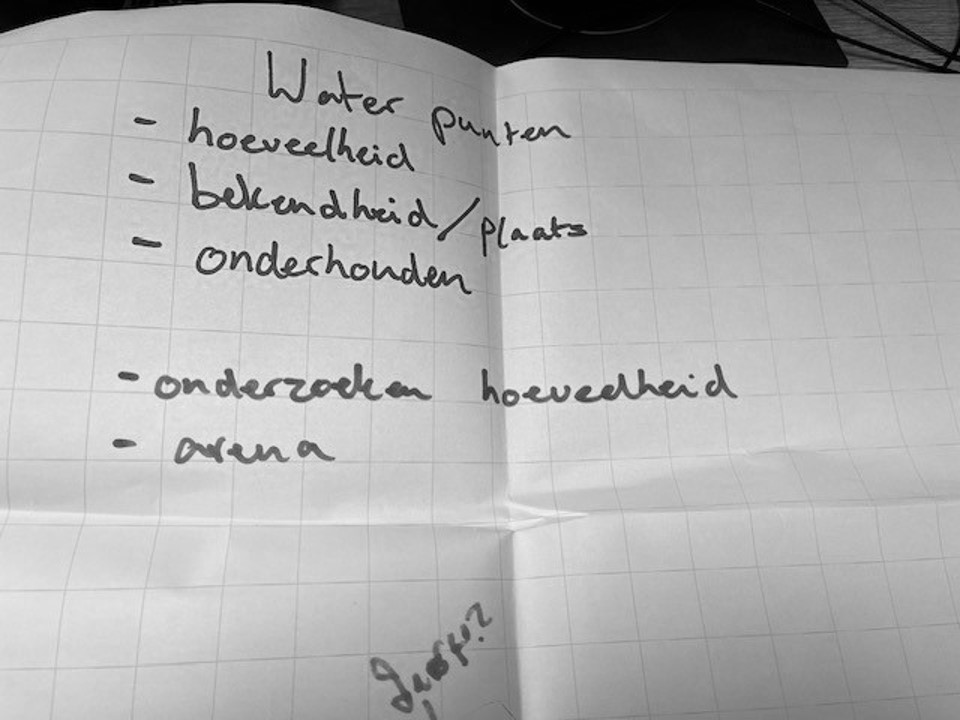 Water punten
- hoeveelheid
- bekendheid/plaats
- onderhouden
- onderzoeken hoeveelheid
- arena